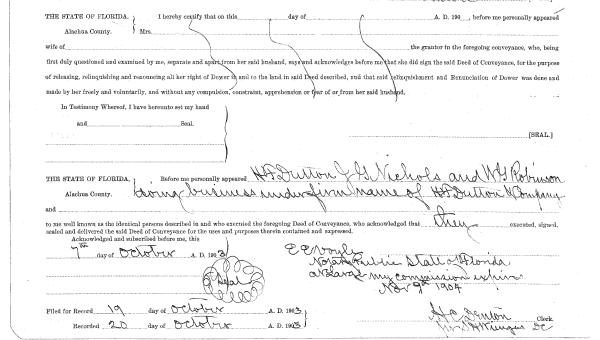 THE STATE OF FLORIDA, I hereby certify that on this day of A. D. 190 , before me personally appeared
Alachua County. Mrs.
wife of the grantor in the foregoing conveyance, who, being
first duly questioned and examined by me, separate and apart from her said husband, says and acknowledges before me that she did sign the said Deed of Conveyance, for the purpose
of releasing, relinquishing and renouncing all her right of Dower in and to the land in said Deed described, and that said relinquishment and Renunciation of Dower was done and
made by her freely and voluntarily, and without any compulsion, constraint, apprehension or fear of or from her said husband.
In Testimony Whereof, I have hereunto set my hand
and Seal.
[SEAL.]
THE STATE OF FLORIDA, Before me personally appeared H F Dutton J G Nichols and W G Robinson
Alachua County. doing business under firm name of H F Dutton & Company
and
to me well known as the identical persons described in and who executed the foregoing Deed of Conveyance, who acknowledged that they executed, signed,
sealed and delivered the said Deed of Conveyance for the uses and purposes therein contained and expressed.
Acknowledged and subscribed before me, this
7th day of October A. D. 1903
E E Voyle
Notary Public State of Florida
at Large my commission expires
Nov 9th 1904
Seal
Filed for Record 19 day of October A. D. 1903
Recorded 20 day of October A. D. 1903
H C Denton Clerk.
DC